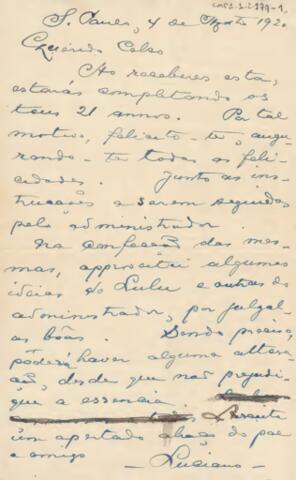 S. Paulo, 4 de Agosto 192
Querido Celso
Ao receberes esta,
estarás completando os
teus 21 annos. Por tal
motivo, felicito-te, augu-
rando-te todas as feli-
cidades. Junto as ins-
trucções a serem seguidas
pelo administrador.
Na confecção das mes-
mas, approveitei algumas
idéias do Lulu e outras do
administrador, por julgal-
as bôas. Sendo preciso,
poderá haver alguma altera-
ção, desde que não prejudi-
que a essencia.
um apertado abraço do pae
e amigo
- Luciano -